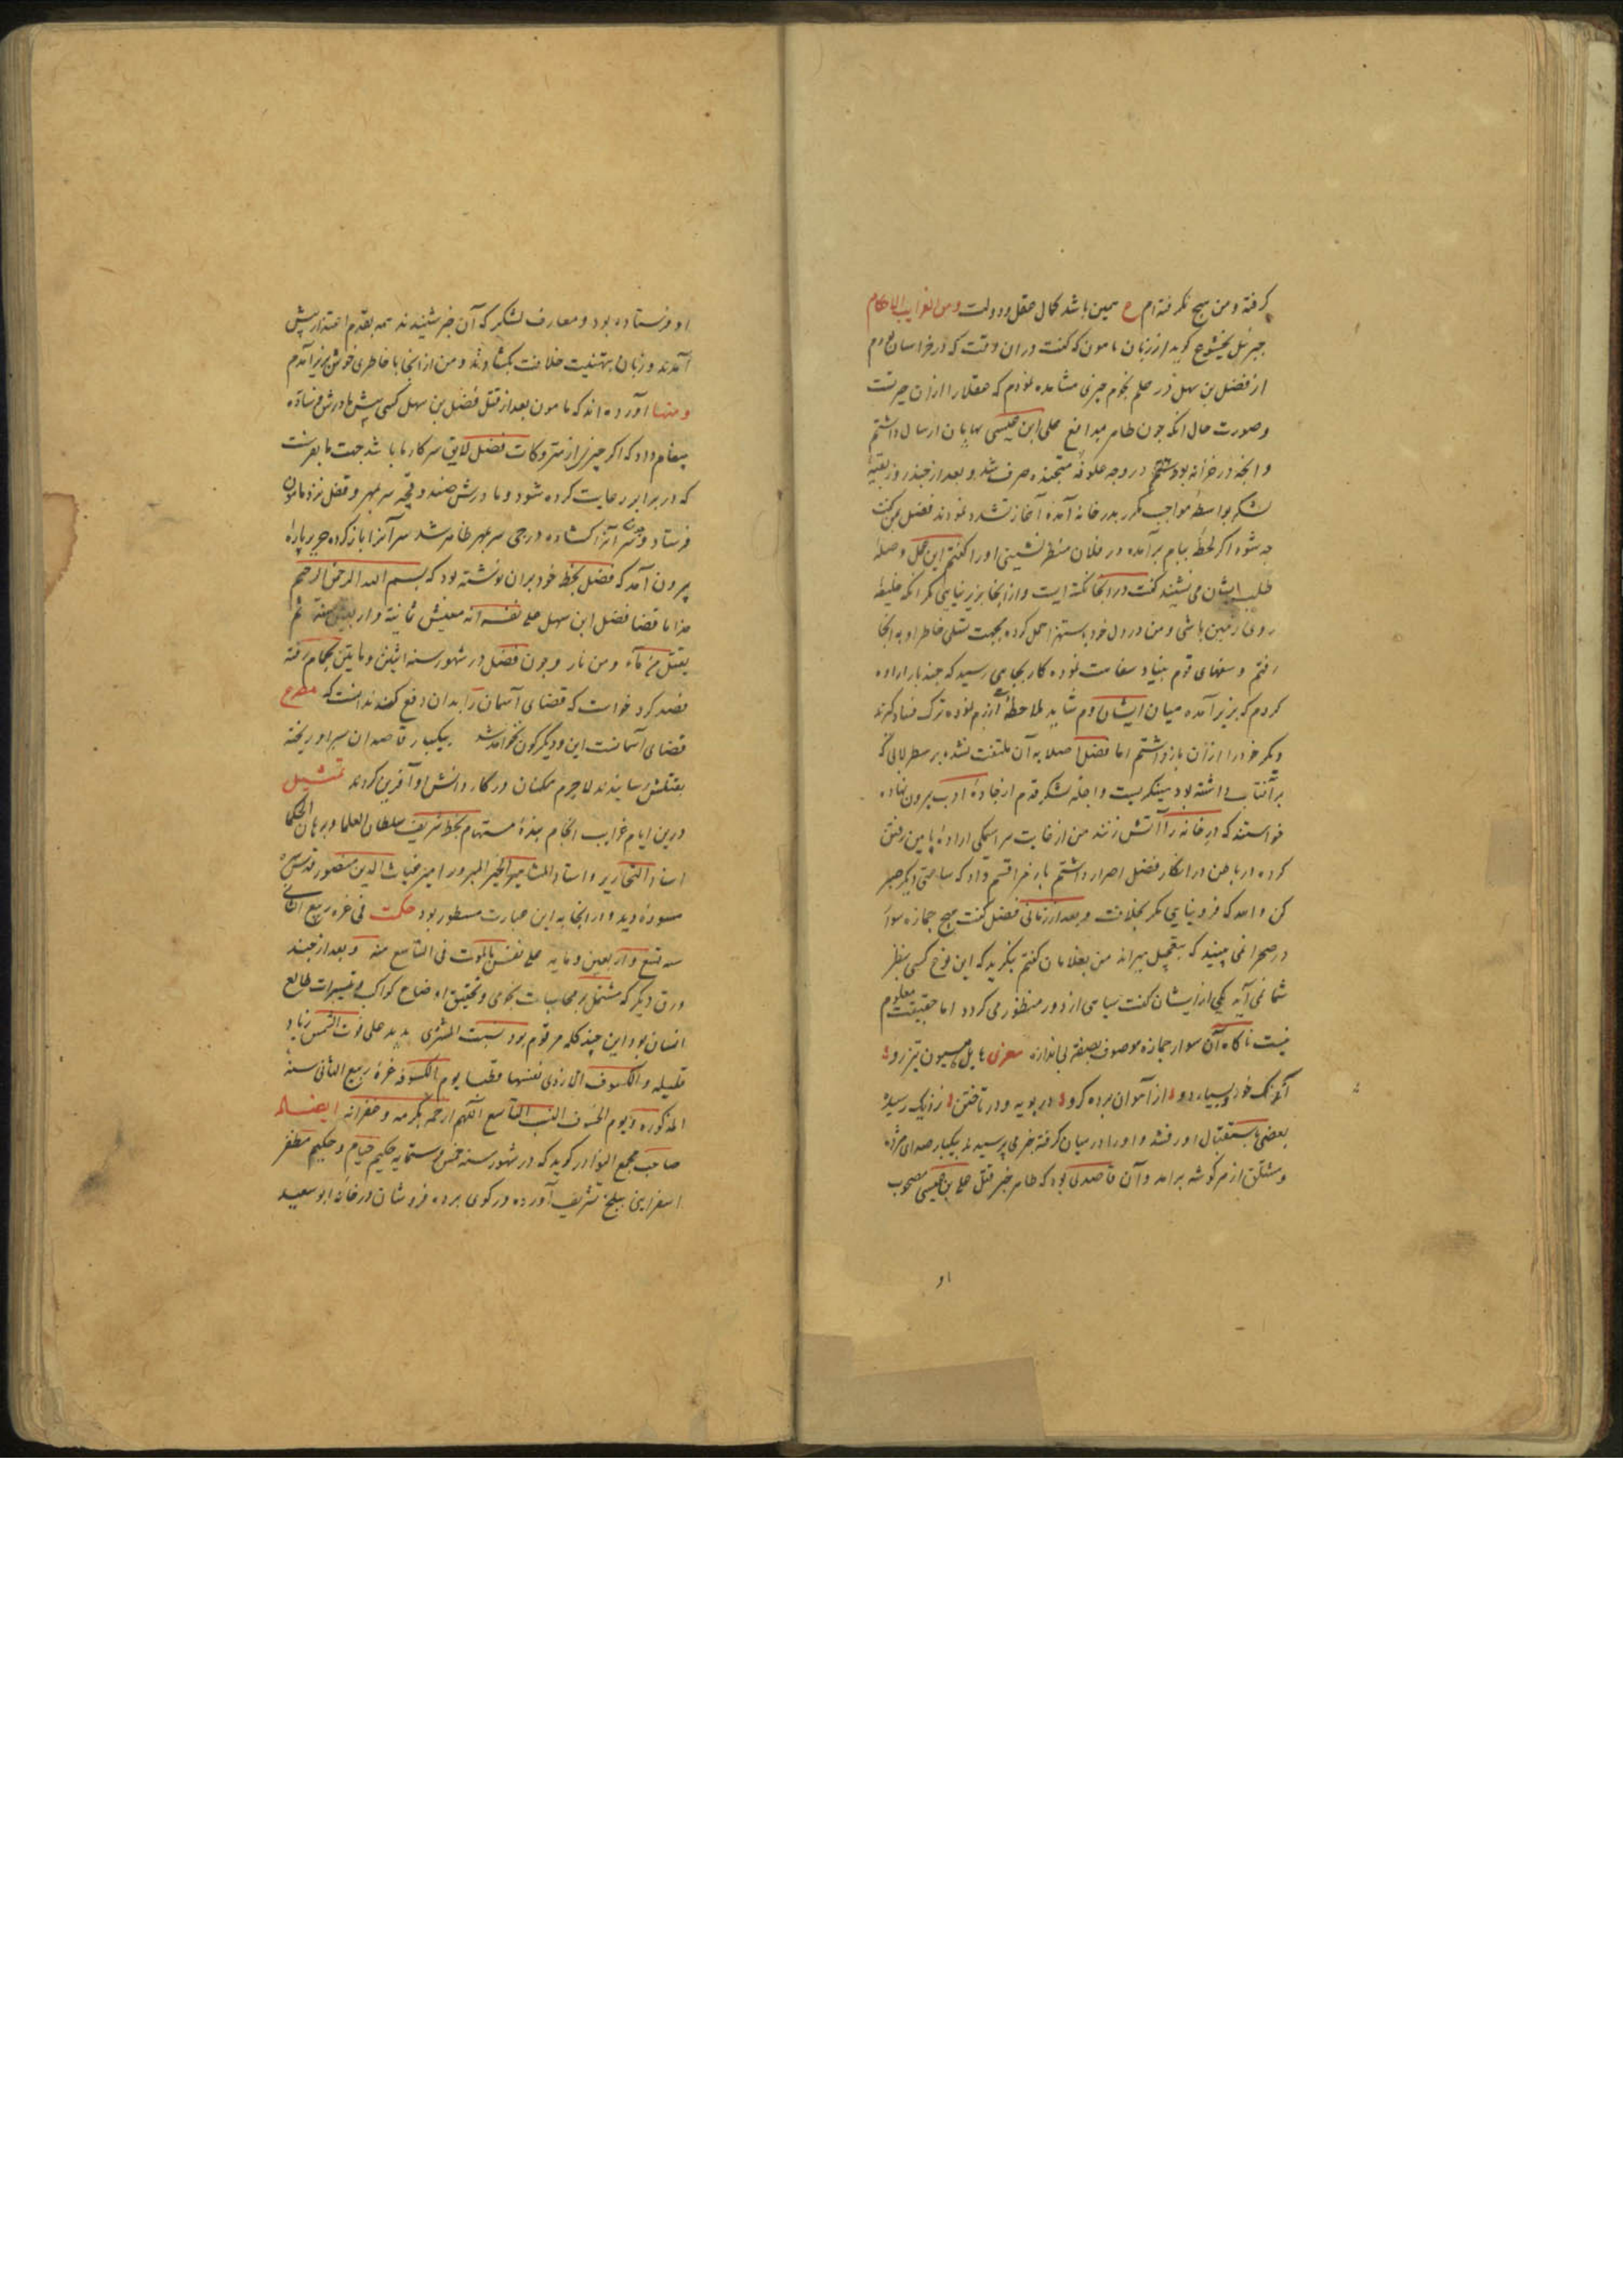 گرفته و من هیچ نگرفته‌ام ع همین باشد کمال عقل و دولت ومن الغرایب الاحکام
جبرئیل بختیشوع کوید از زبان مامون که گفت در ان وقت که در خراسان بودم
از فضل بن سهل در علم نجوم چیزی مشاهده نمودم که عقلا را از ان حیرتست
و صورت حال انکه چون طاهر بمدافع علی ابن عیسی بپایان ارسال داشتم
و انچه در خزانه بود در وجه علوفه متجنده صرف شد و بعد از چند روز بقیهٔ
لشکر بواسطهٔ مواجب مکرر بدر خانه آمده آغاز تشدد نمودند فضل بمن گفت
چه شود اگر لحظهٔ ببام برآمده در فلان منظر نشینی او را گفتم این محل وصلهٔ
طلب ایشان می‌نشیند گفت در اینجا نکته ایست و از انجا بزیر نیایی مگر انکه خلیفهٔ
روی زمین باشی و من در دل خود باستهزا حمل کرده بجهت تسلی خاطر او به انجا
رفتم و سفهای قوم بنیاد سفاهت نموده کار بجایی رسید که چند بار اراده
کردم که بزیر آمده میان ایشان روم شاید ملاحظهٔ آزرم نموده ترک فساد گیرند
و دیگر خود را از ان باز داشتم اما فضل اصلا به آن ملتفت نشده بر سطرلابی که
بر آفتاب داشته بود مینگریست و اجلهٔ لشکر قدم از جادهٔ ادب بیرون نهاده
خواستند که در خانه را آتش زنند من از غایت سراسیمگی ارادهٔ پایین رفتن
کرده در باطن در انکار فضل اصرار داشتم باز مرا قسم داد که ساعتی دیگر صبر
کن والله که فرو نیایی مگر بخلافت و بعد از زمانی فضل گفت هیچ جمازه سوار
در صحرا می‌بینید که بتعجیل میراند من بغلامان گفتم بنگرید که این نوع کسی بنظر
شما می‌آید یکی از ایشان گفت سیاهی از دور منظور می‌گردد اما حقیقت معلوم
نیست ناگاه آن سوار جمازه موصوف بصفتی بی‌اندازه معزی هایل هیون تیزرو
اندک خور بسیار دو از آهوان برده گرو در پویه و در تاختن نزدیک رسید
بعضی باستقبال او رفتند و او را در میان گرفته خبر می‌پرسیدند بیکبار صدای مژده
و مشتلق از هر گوشه برامد و آن قاصدی بود که طاهر خبر قتل علی بن عیسی مصحوب
او
او فرستاده بود و معارف لشکر که آن خبر شنیدند همه بقدم اعتذار پیش
آمدند و زبان بتهنیت خلافت بگشادند و من از انجا با خاطری خوش بزیر آمدم
ومنها آورده‌اند که مامون بعد از قتل فضل بن سهل کسی پیش مادرش فرستاده
پیغام داد که اکر چیزی از متروکات فضل لایق سرکار ما باشد جهت ما بفرست
که در برابر رعایت کرده شود و مادرش صندوقچه سربمهر و قفل نزد مامون
فرستاد و چون سر آنرا گشاده درجی سربمهر ظاهر شد سر آنرا باز کرده حریر پارهٔ
بیرون آمد که فضل بخط خود بران نوشته بود که بسم الله الرحمن الرحیم
هذا ما قضا فضل ابن سهل علی نفسه انه معیش ثمانیة و اربعین سنة ثم
یقتل من مآء و من نار و چون فضل در شهور سنه اثنین و مایتین بحمام رفته
فصد کرد خواست که قضای آسمان را بدان دفع کند ندانست که مصرع
قضای آسمانست این و دیگرگون نخواهد شد بیکبار قاصدان بسر او ریخته
بقتلش رسانیدند لاجرم همکنان در کار دانش او آفرین کردند تمثیل
درین ایام غرایب انجام بندهٔ مستهام بخط شریف سلطان العلما و برهان الحکما
استاد النحاریر و استاد المشاهیر الحبر المبرور امیر غیاث الدین منصور قدس سره
مسودهٔ دید و در انجا به این عبارت مسطور بود حکمت فی غره ربیع الثانی
سنه تسع و اربعین و مایه علی نفسی بالموت فی التاسع منه و بعد از چند
ورق دیگر که مشتمل بر محاسبات نجومی و تحقیق اوضاع کواکب و تسییرات طالع
انسان بود این چند کلمه مرقوم بود سبت المشتری یدید علی فوت الشمس زیاد
قلیله و الکسوف الارذی نفسها وقتا یوم الکسوف غرهٔ ربیع الثانی سنهٔ
المذکوره و یوم الخسوف النسب التاسع اللهم ارحمه بکرمه و غفرانه ایضا
صاحب مجمع النوادر گوید که در شهور سنه خمس و ستمایه حکیم خیام و حکیم مظفر
اسفزاینی ببلخ تشریف آورده در کوی برده فروشان در خانهٔ ابو سعید